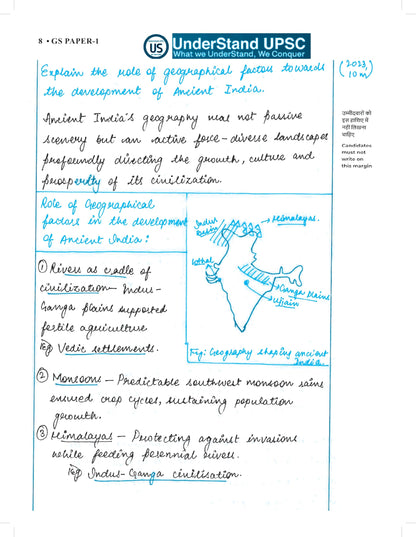 8 • GS PAPER-I
US
UnderStand UPSC
What we UnderStand, We Conquer
Explain the role of geographical factors towards
the development of Ancient India.
(2023, 10m)
उम्मीदवारों को
इस हाशिए में
नहीं लिखना
चाहिए
Candidates
must not
write on
this margin
Ancient India's geography was not passive
scenery but an active force - diverse landscapes
profoundly directing the growth, culture and
prosperity of its civilization.
Role of Geographical
factors in the development
of Ancient India:
Indus Basin
Himalayas.
Lothal
Ganga Plains
Ujjain
Fig: Geography shaping ancient India.
① Rivers as cradle of
civilization - Indus-
Ganga plains supported
fertile agriculture
Eg) Vedic settlements.
② Monsoons - Predictable southwest monsoon rains
ensured crop cycles, sustaining population
growth.
③ Himalayas - Protecting against invasions
while feeding perennial rivers.
Eg) Indus-Ganga civilisation.